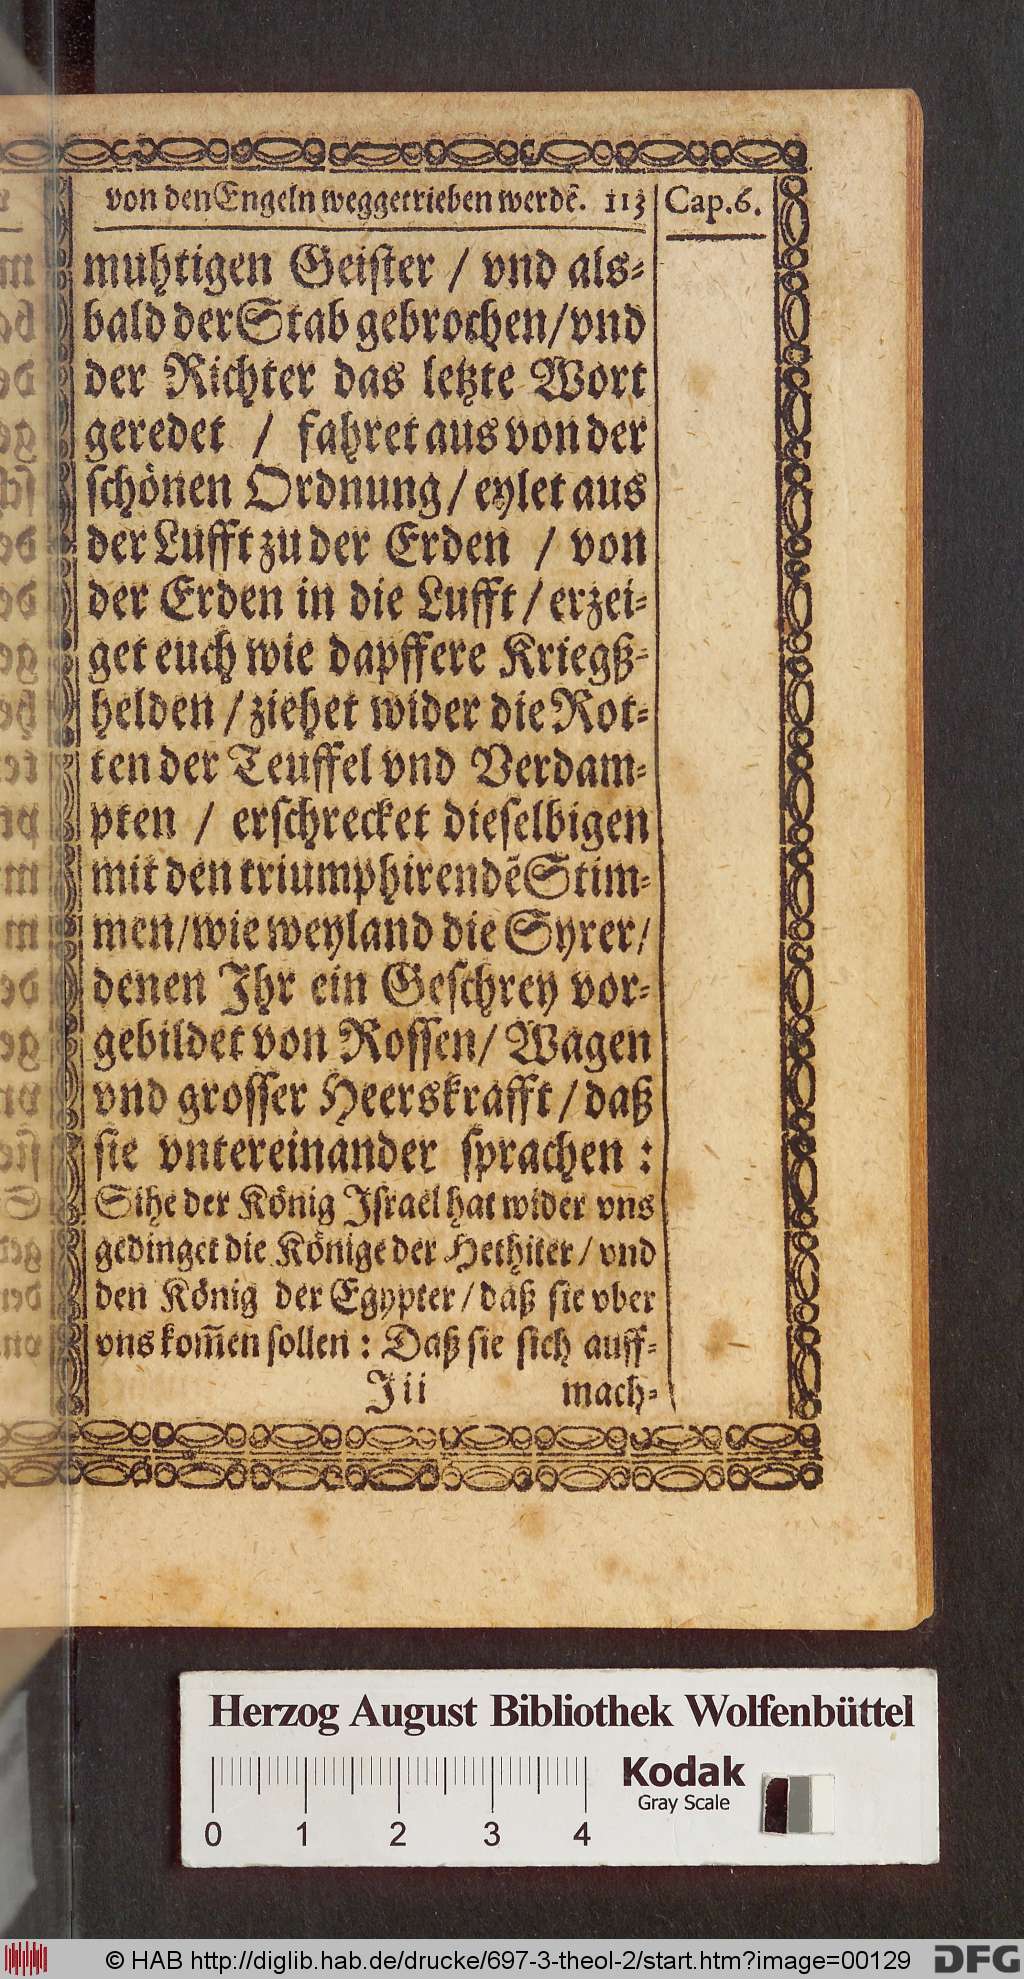 von den Engeln weggetrieben werdẽ. 113 Cap. 6.
muhtigen Geister / vnd als⸗
bald der Stab gebrochen / vnd
der Richter das letzte Wort
geredet / fahret aus von der
schönen Ordnung / eylet aus
der Lufft zu der Erden / von
der Erden in die Lufft / erzei⸗
get euch wie dapffere Kriegß⸗
helden / ziehet wider die Rot⸗
ten der Teuffel vnd Verdam⸗
pten / erschrecket dieselbigen
mit den triumphirendẽ Stim⸗
men / wie weyland die Syrer /
denen Ihr ein Geschrey vor⸗
gebildet von Rossen / Wagen
vnd grosser Heerskrafft / daß
sie vntereinander sprachen :
Sihe der König Israel hat wider vns
gedinget die Könige der Hethiter / vnd
den König der Egypter / daß sie vber
vns kom̃en sollen : Daß sie sich auff⸗
Iii mach⸗
Herzog August Bibliothek Wolfenbüttel
Kodak
Gray Scale
0 1 2 3 4
© HAB http://diglib.hab.de/drucke/697-3-theol-2/start.htm?image=00129 DFG